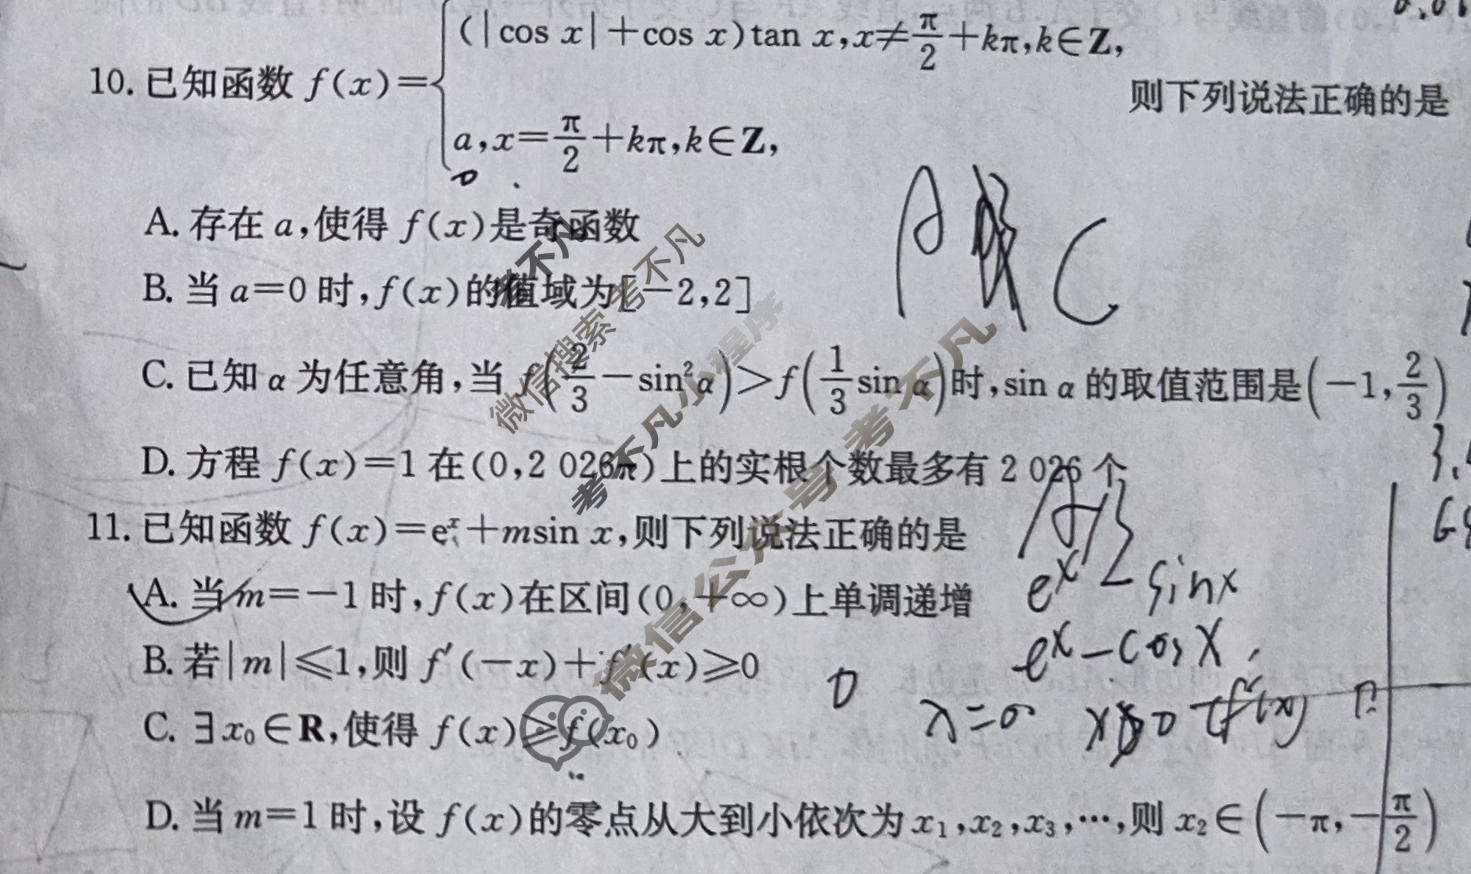 10. 已知函数 f(x)={(|cos x|+cos x)tan x,x≠π/2+kπ,k∈Z,
a,x=π/2+kπ,k∈Z, 则下列说法正确的是
0
A. 存在 a,使得 f(x)是奇函数
B. 当 a=0 时,f(x)的值域为[-2,2]
A C
C. 已知 α 为任意角,当 f(2/3-sin²α)>f(1/3 sin α)时,sin α 的取值范围是(-1,2/3)
D. 方程 f(x)=1 在(0,2 026π)上的实根个数最多有 2 026 个
11. 已知函数 f(x)=eˣ+msin x,则下列说法正确的是
A. 当 m=-1 时,f(x)在区间(0,+∞)上单调递增
eˣ-sinx
B. 若|m|≤1,则 f′(-x)+f′(x)≥0
eˣ-cosx
0
C. ∃x₀∈R,使得 f(x)≥f(x₀)
x=0
D. 当 m=1 时,设 f(x)的零点从大到小依次为 x₁,x₂,x₃,⋯,则 x₂∈(-π,-π/2)
微信搜索
考不凡小程序
微信公众号考不凡
考不凡